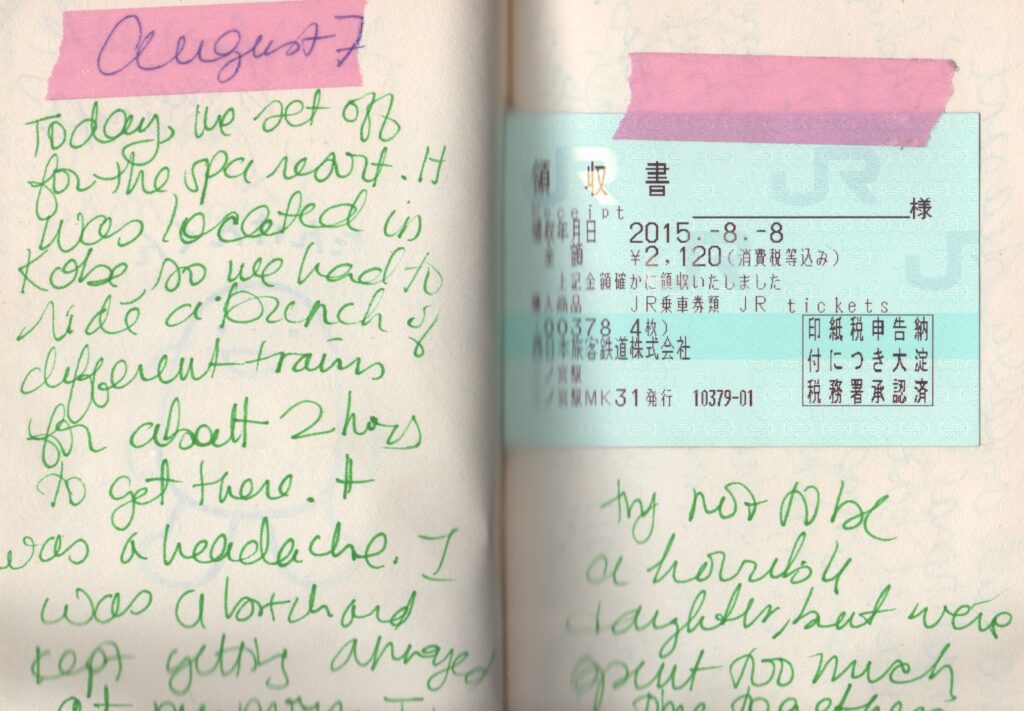 August 7
Today, we set off
for the spa resort. It
was located in
Kobe so we had to
ride a bunch of
different trains
for about 2 hours
to get there. It
was a headache. I
was a bitch and
kept getting annoyed
at my mom. I
JR
JR
領収書
Receipt 様
領収年月日 2015.-8.-8
金額 ¥2,120(消費税等込み)
上記金額確かに領収いたしました
購入商品 JR乗車券類 JR tickets
(00378 4枚)
西日本旅客鉄道株式会社
三ノ宮駅
三ノ宮駅MK31発行 10379-01
印紙税申告納
付につき大淀
税務署承認済
try not to be
a horrible
daughter, but were
spent too much
time together